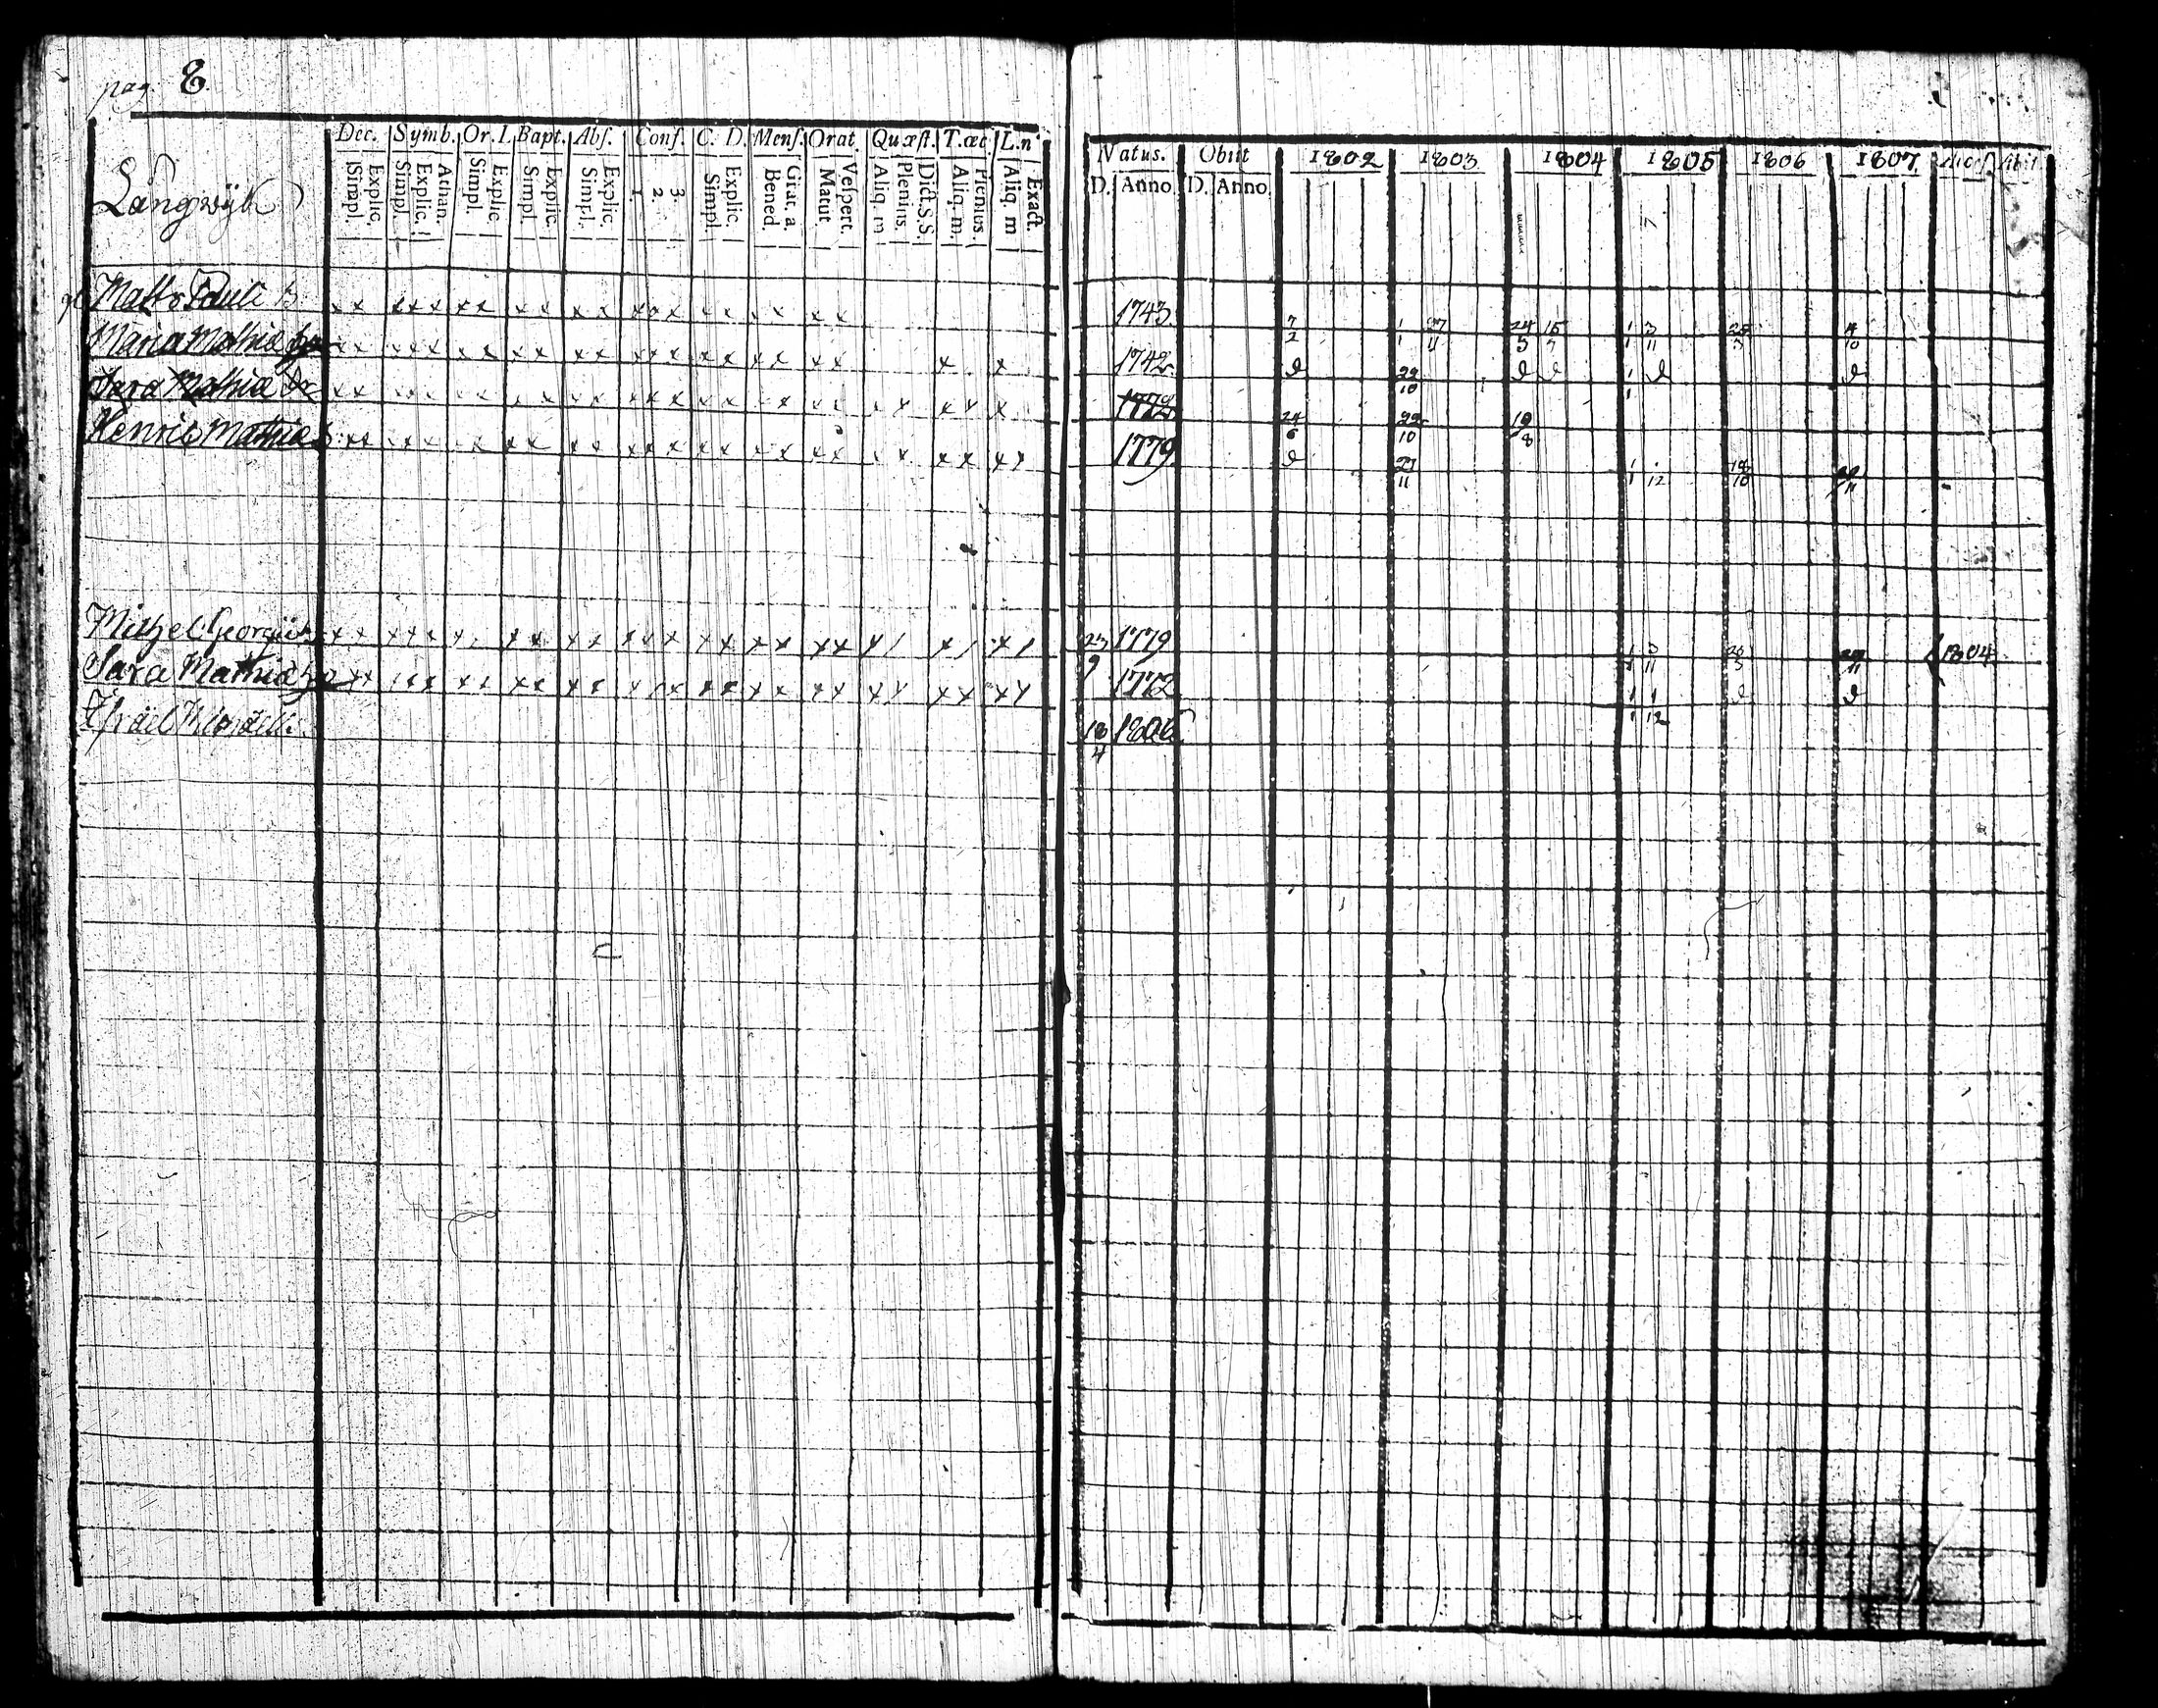 pag. 8
Dec. Symb. Or. I. Bapt. Abs. Conf. C. D. Mens. Orat. Quæst. T. œc. L. n
Explic. Simpl. Athan. Explic. Simpl. Explic. Simpl. Explic. Simpl. Explic. Simpl. 3. 2. 1. Explic. Simpl Grat. a. Bened. Vespert. Matut. Dict. S. S. Plenius. Aliq. m Plenius. Aliq. m. Exact. Aliq. m
Natus. Obiit 1802 1803 1804 1805 1806 1807
D. Anno D. Anno
Långwÿk
Matts Pauli 1743 7/2 1/1 27/11 24/5 15/7 1/1 3/11 25/3 4/10
Maria Mathiæ 1742 d 29/10 d d 1/1 d d
Sara Mathiæ 1772 24/6 29/10 19/8
Henric Mathiæ 1779 d 27/11 1/1 12 18/10 11
Michel Georgii 23/9 1779 1/1 3/11 20/3 11 1804
Sara Mathiæ 1772 1/1 1/12 d d
18/4 1806